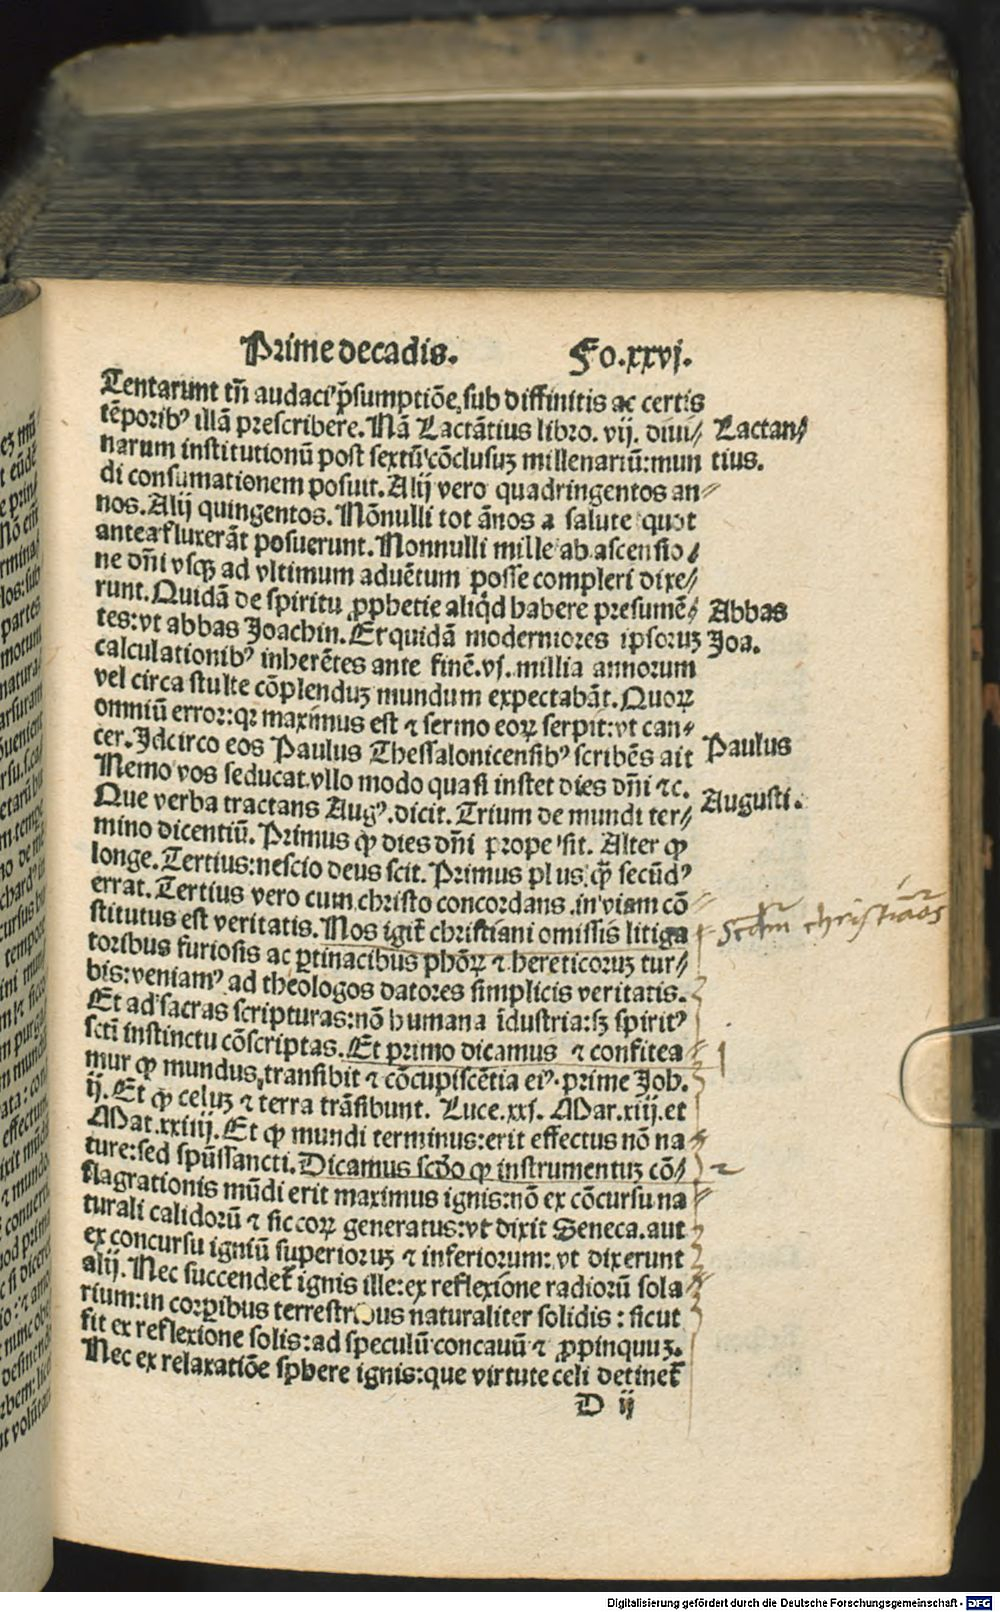 Prime decadis. Fo.xxvj.
Tentarunt tñ audaci p̄sumptiōe, sub diffinitis ac certis
tēporibꝰ illā prescribere. Nā Lactātius libro. vij. diui⸗ Lactan⸗
narum institutionū post sextū cōclusuꝫ millenariū: mun tius.
di consumationem posuit. Alij vero quadringentos an⸗
nos. Alij quingentos. Nōnulli tot ānos a salute quot
antea fluxerāt posuerunt. Nonnulli mille ab ascensio⸗
ne dn̄i vsqꝫ ad vltimum aduētum posse compleri dixe⸗
runt. Quidā de spiritu ꝓphetie aliq̇d habere presumē⸗ Abbas
tes: vt abbas Joachin. Et quidā moderniores ipsoruꝫ Joa.
calculationibꝰ inherētes ante finē. vj. millia annorum
vel circa stulte cōplenduꝫ mundum expectabāt. Quoꝝ
omniū error: qꝛ maximus est ⁊ sermo eoꝝ serpit: vt can⸗
cer. Jdcirco eos Paulus Thessalonicensibꝰ scribēs ait Paulus
Nemo vos seducat vllo modo quasi instet dies dn̄i ⁊c.
Que verba tractans Augꝰ. dicit. Trium de mundi ter⸗ Augusti.
mino dicentiū. Primus ꝙ dies dn̄i prope sit. Alter ꝙ
longe. Tertius: nescio deus scit. Primus plus q̄ʒ secūdꝰ
errat. Tertius vero cum christo concordans, in viam cō
stitutus est veritatis. Nos igit᷑ christiani omissis litiga
toribus furiosis ac ꝑtinacibus phōꝝ ⁊ hereticoruꝫ tur⸗
bis: veniamꝰ ad theologos datores simplicis veritatis.
Et ad sacras scripturas: nō humana īdustria: sꝫ spiritꝰ
scti̅ instinctu cōscriptas. Et primo dicamus ⁊ confitea⸗
mur ꝙ mundus transibit ⁊ cōcupiscētia eiꝰ. prime Joh.
ij. Et ꝙ celuꝫ ⁊ terra trāsibunt. Luce. xxj. Mar. xiij. et
Mat. xxiiij. Et ꝙ mundi terminus: erit effectus nō na
ture: sed spūssancti. Dicamus scd̄o ꝙ instrumentuꝫ cō⸗ 2
flagrationis mūdi erit maximus ignis: nō ex cōcursu na
turali calidorū ⁊ siccoꝝ generatus: vt dixit Seneca. aut
ex concursu igniū superioruꝫ ⁊ inferiorum: vt dixerunt
alij. Nec succendet᷑ ignis ille: ex reflexione radiorū sola⸗
rium: in corꝑibus terrestr us naturaliter solidis: sicut
fit ex reflexione solis: ad speculū concauū ⁊ ꝓpinquuꝫ.
Nec ex relaxatiōe sphere ignis: que virtute celi detinet᷑
D ij
Digitalisierung gefördert durch die Deutsche Forschungsgemeinschaft - DFG